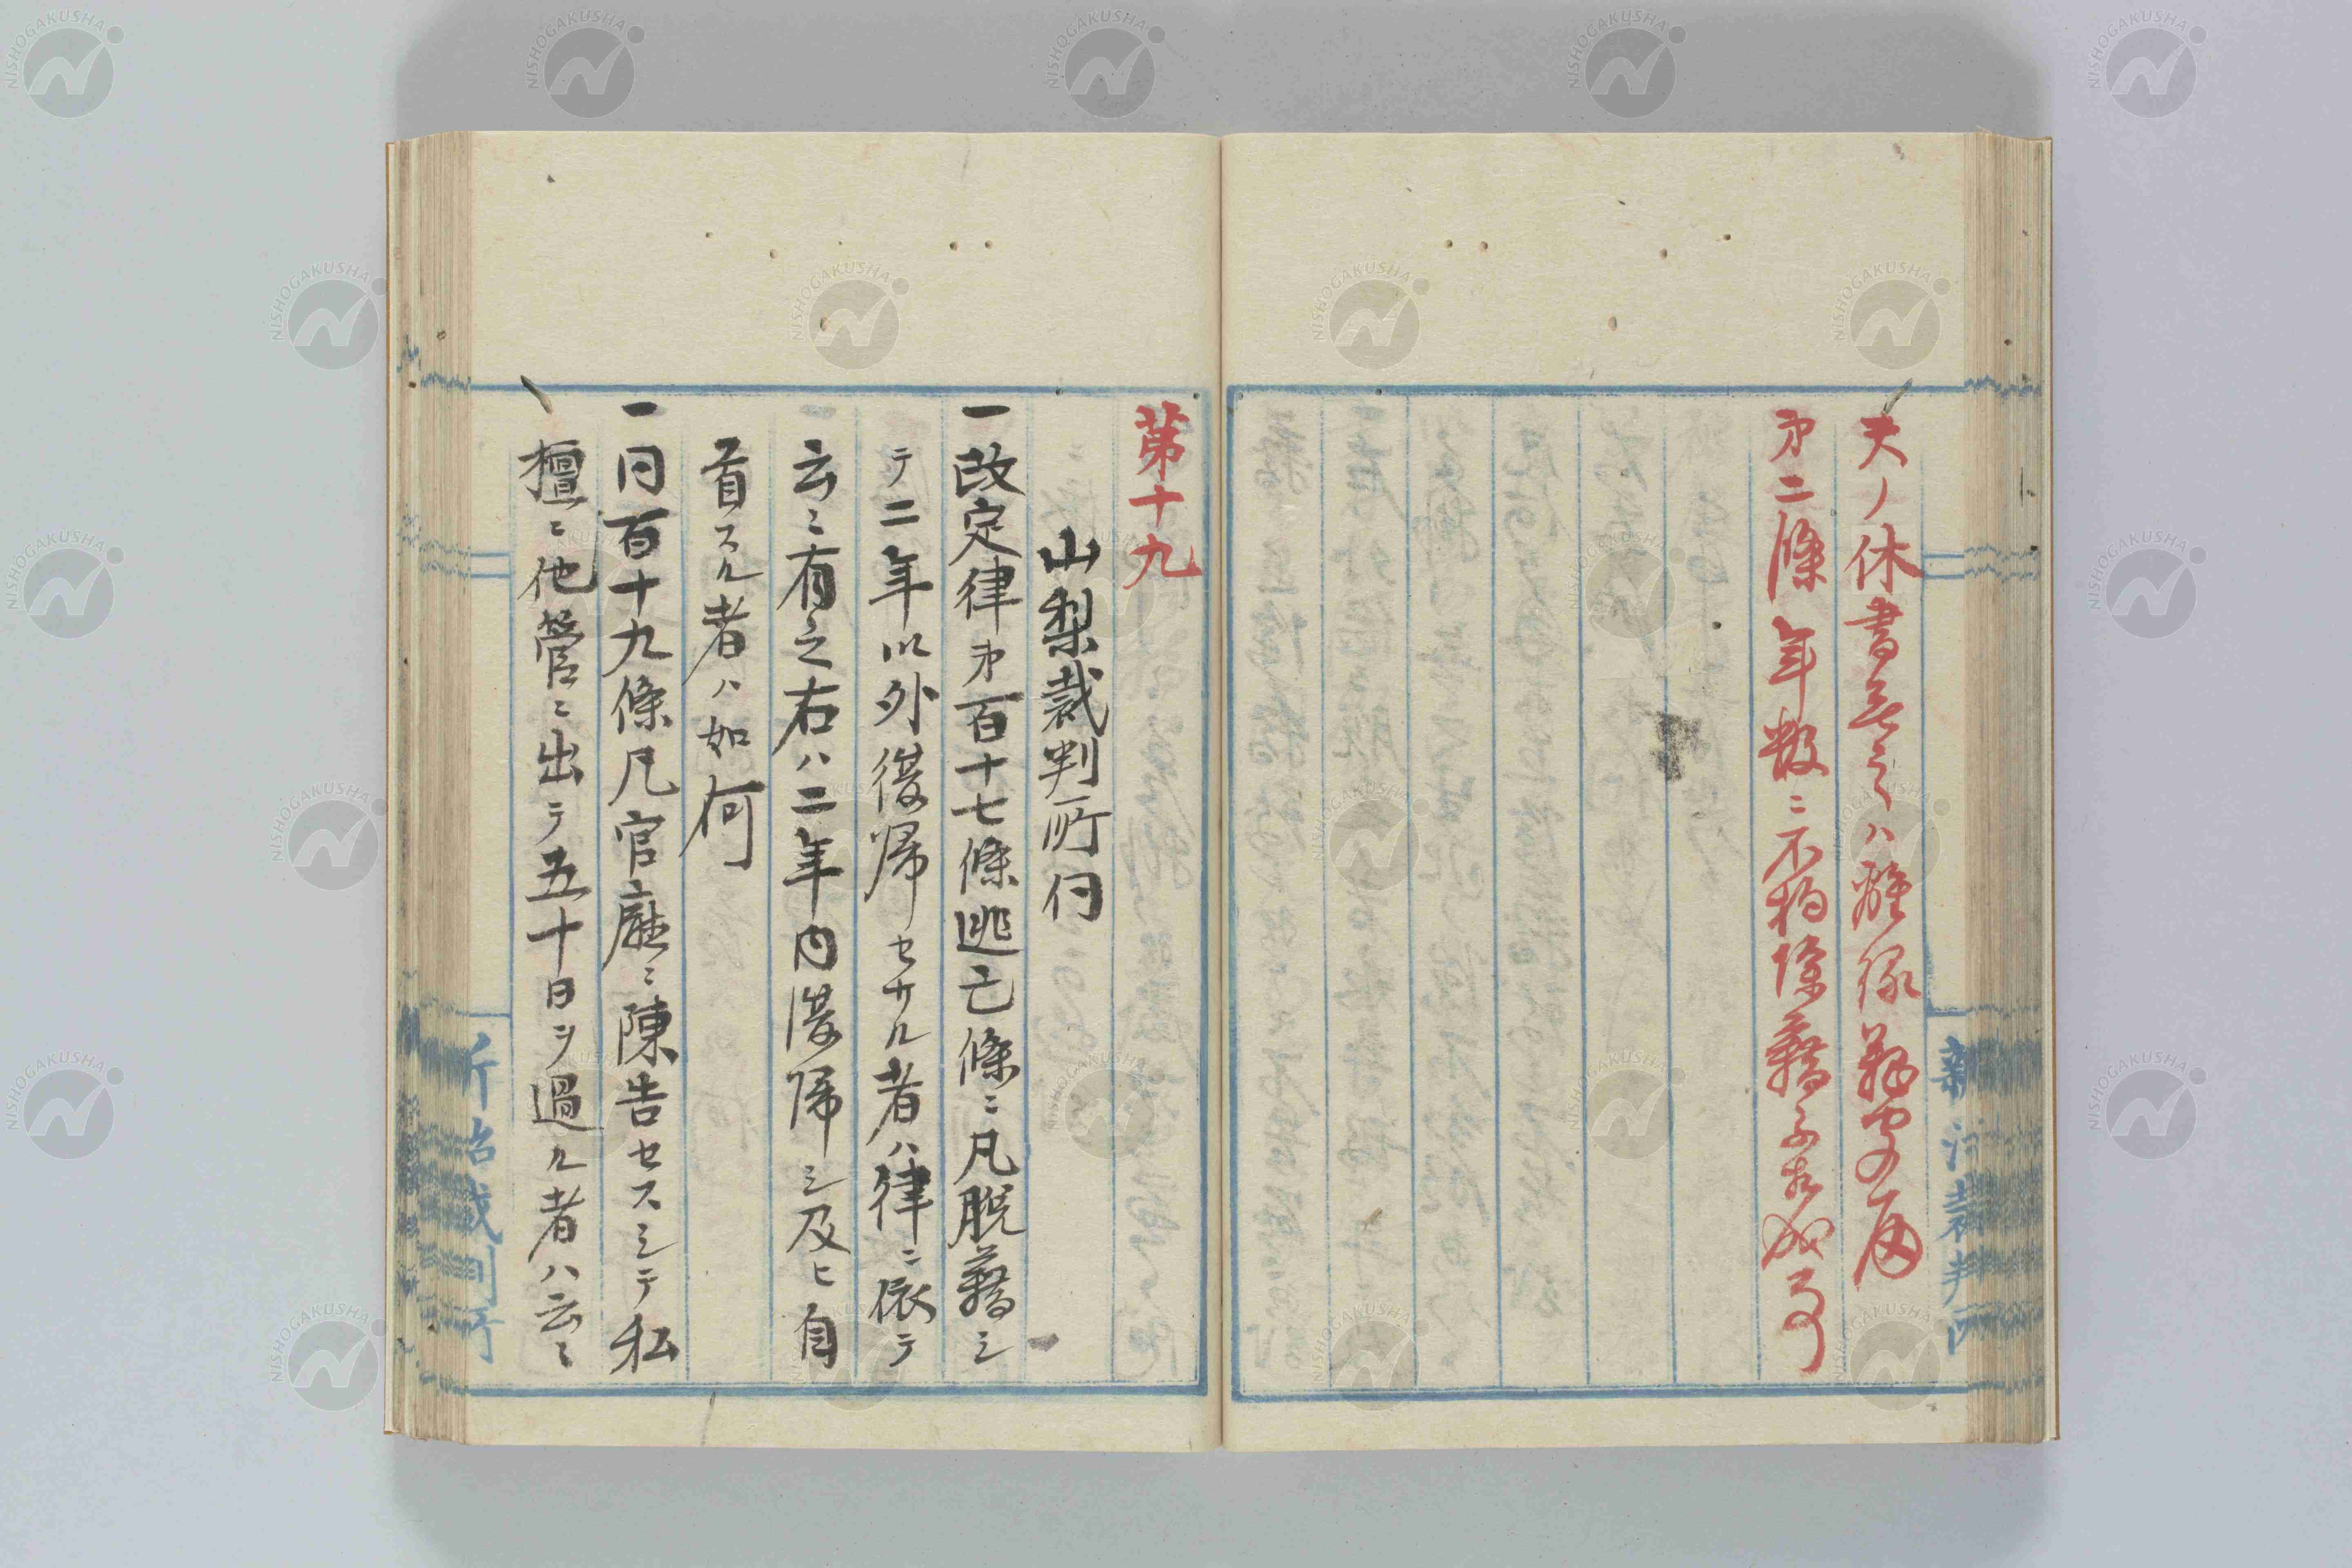 夫ノ休書無之ハハ離縁
第二條 年数ニ不拘除籍不相成事
第十九
山梨裁判所伺
一改定律第百十七條逃亡條ニ凡脱籍シ
テ二年以外復帰セサル者ハ律ニ依テ
云々有之右ハ二年内復帰シ及ヒ自
首スル者ハ如何
一同百十九條凡官廳ニ陳告セスシテ私
擅ニ他管ニ出テ五十日ヲ過ル者ハ云々
新治裁判所
NISHOGAKUSHA